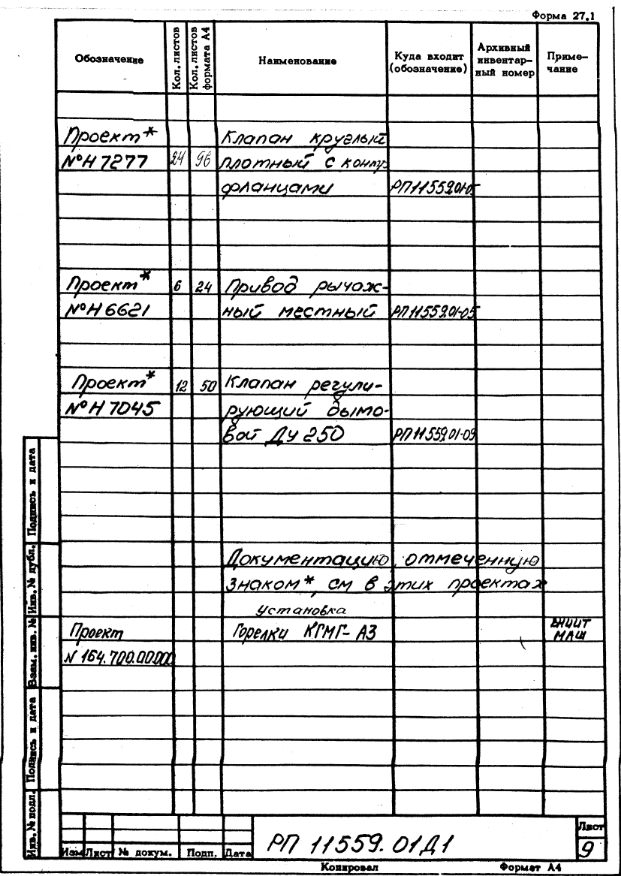 Форма 27.1
Обозначение
Кол. листов
Кол. листов формата А4
Наименование
Куда входит (обозначение)
Архивный инвентарный номер
Примечание
Проект* Клапан круглый
№Н7277 24 96 плотный с контр
фланцами РП11559.01-05
Проект* 6 24 Привод рычаж-
№Н6621 ный местный РП11559.01-05
Проект* 12 50 Клапан регули-
№Н7045 рующий дымо-
вой Ду 250 РП11559.01-09
Документацию, отмеченную
знаком*, см в этих проектах
установка
Проект Горелки КГМГ-А3 ВНИИТ
МАШ
N 164.700.00.000
Инв. № подл. Подпись и дата Взам. инв. № Инв. № дубл. Подпись и дата
РП 11559.01Д1
Лист
9
Изм Лист № докум. Подп. Дата
Копировал Формат А4